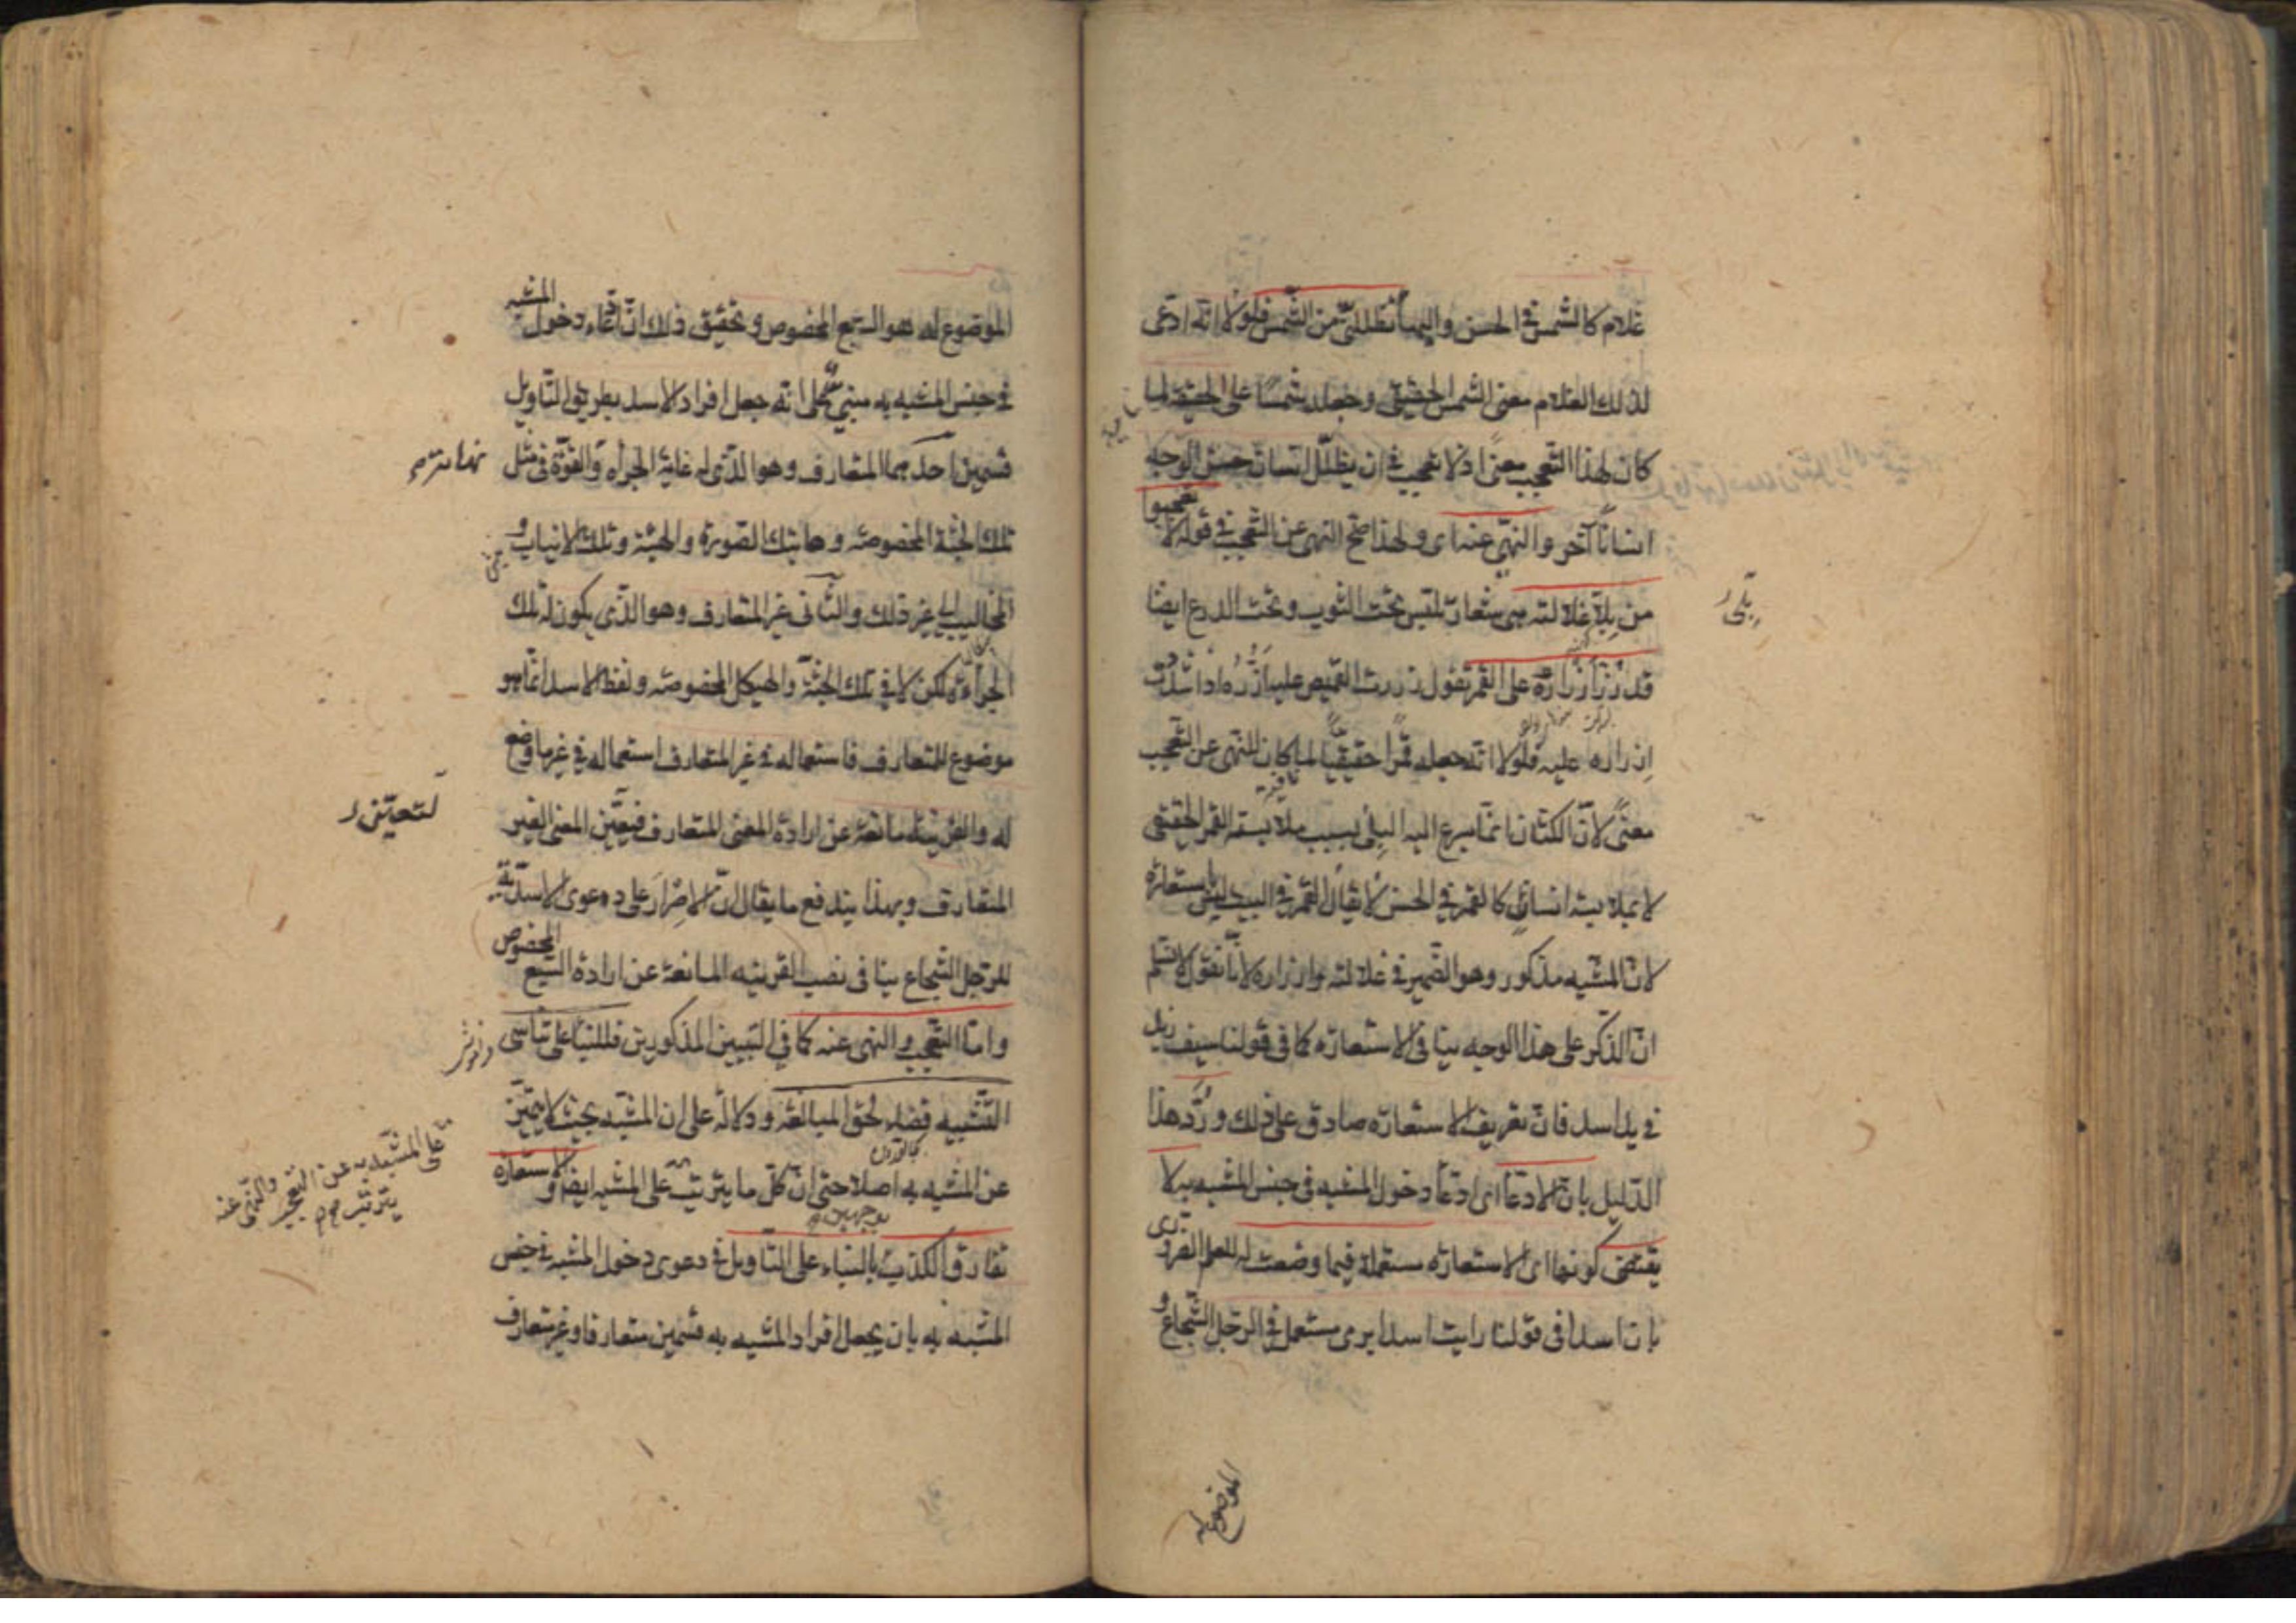 غلام كالشمس في الحسن والبهاء تظللني من الشمس فلولا انه ادعى
لذلك الغلام معنى الشمس الحقيقى وجعله شمسًا على الحقيقة لما
كان لهذا التعجب معنىً اذ لا تعجب فى ان يظلل انسان حسن الوجه
انسانًا آخر والنهى عنه اى ولهذا صح النهى عن التعجب فى قوله لا تعجبوا
من بلى غلالته هى شعار تلبس تحت الثوب وتحت الدرع ايضا
قد زر ازراره على القمر تقول زررت القميص عليه ازره اذا شددت
ازراره عليه فلولا انه جعله قمرًا حقيقيًا لما كان للنهى عن التعجب
معنىً لان الكتان انما يسرع اليه البلى بسبب ملابسة القمر الحقيقى
لا بملابسة انسان كالقمر فى الحسن لا يقال القمر فى البيت ليس باستعارة
لان المشبه مذكور وهو الضمير فى غلالته وازراره لانا نقول لا نسلم
ان الذكر على هذا الوجه ينافى الاستعارة كما فى قولنا سيف زيد
فى يد اسد فان تعريف الاستعارة صادق على ذلك ورد هذا
الدليل بان الادعاء اى ادعاء دخول المشبه فى جنس المشبه به لا
يقتضى كونها اى الاستعارة مستعملة فيما وضعت له للعلم الضرورى
بان اسدا فى قولنا رايت اسدا يرمى مستعمل فى الرجل الشجاع و
بلى
الموضوع له
الموضوع له هو السبع المخصوص وتحقيق ذلك ان ادعاء دخول المشبه
فى جنس المشبه به مبنى على انه جعل افراد الاسد بطريق التاويل
قسمين احدهما المتعارف وهو الذى له غاية الجرأة والقوة فى مثل
تلك الجثة المخصوصة وهاتيك الصورة والهيئة وتلك الانياب و
المخاليب الى غير ذلك والثانى غير المتعارف وهو الذى يكون له تلك
الجرأة لكن لا فى تلك الجثة والهيكل المخصوصة ولفظ الاسد انما هو
موضوع للمتعارف فاستعماله فى غير المتعارف استعمال له فى غير ما وضع
له والقرينة مانعة عن ارادة المعنى المتعارف فيتعين المعنى الغير
المتعارف وبهذا يندفع ما يقال ان الاصرار على دعوى الاسدية
للرجل الشجاع ينافى نصب القرينة المانعة عن ارادة السبع المخصوص
واما التعجب والنهى عنه كما فى البيتين المذكورين فللبناء على تناسى
التشبيه قضاء لحق المبالغة ودلالة على ان المشبه بحيث لا يتميز
عن المشبه به اصلا حتى ان كل ما يترتب على المشبه به ايضا والاستعارة
تفارق الكذب بالبناء على التاويل فى دعوى دخول المشبه فى جنس
المشبه به بان يجعل افراد المشبه به قسمين متعارفا وغير متعارف
لتعين
على المشبه به من التعجب والنهى عنه
يترتب